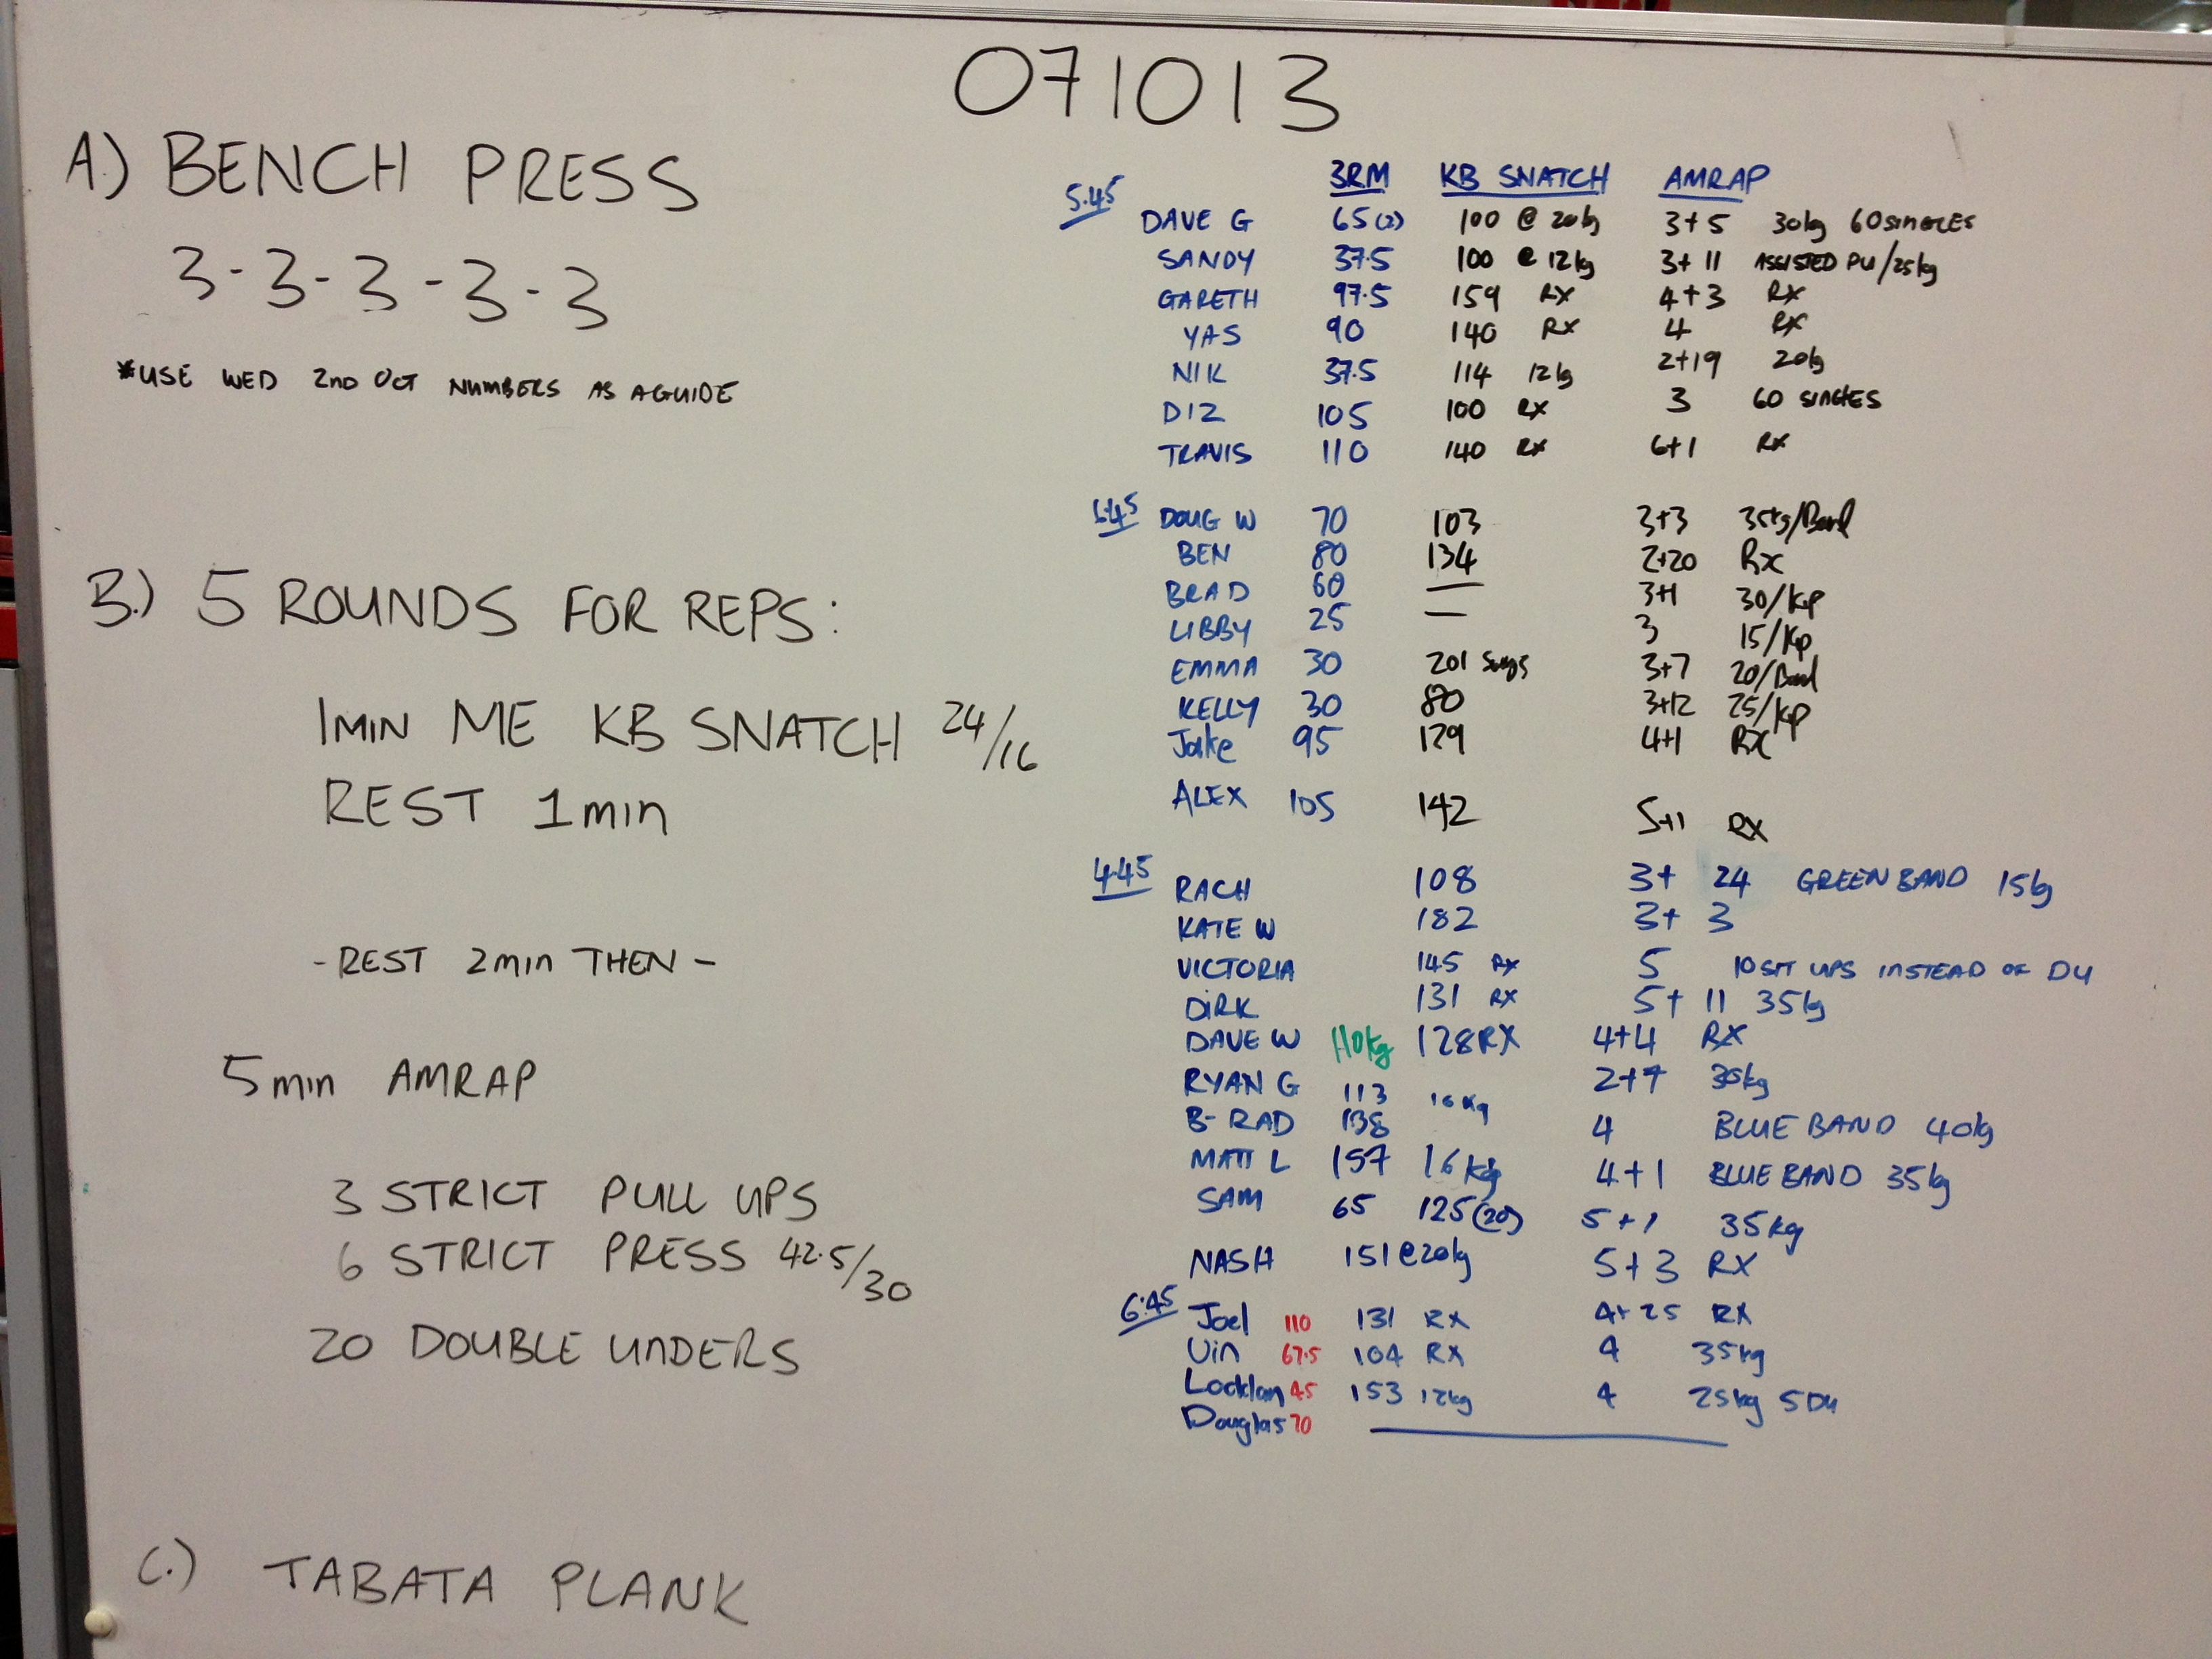 071013
A.) BENCH PRESS
3-3-3-3-3
*USE WED 2nd OCT NUMBERS AS A GUIDE
B.) 5 ROUNDS FOR REPS:
1MIN ME KB SNATCH 24/16
REST 1min
-REST 2min THEN-
5min AMRAP
3 STRICT PULL UPS
6 STRICT PRESS 42.5/30
20 DOUBLE UNDERS
C.) TABATA PLANK
3RM KB SNATCH AMRAP
5.45
DAVE G 65(2) 100 @ 20kg 3+5 30kg 60 SINGLES
SANDY 37.5 100 @ 12kg 3+11 ASSISTED PU/25kg
GARETH 97.5 159 RX 4+3 RX
YAS 90 140 RX 4 RX
NIK 37.5 114 12kg 2+19 20kg
DIZ 105 100 RX 3 60 SINGLES
TRAVIS 110 140 RX 6+1 RX
DOUG W 70 103 3+3 35kg/Band
BEN 80 134 2+20 Rx
BRAD 60 — 3+1 30/Kp
LIBBY 25 — 3 15/Kp
EMMA 30 201 Swgs 3+7 20/Band
KELLY 30 80 3+12 25/Kp
Jake 95 129 4+1 RX
ALEX 105 142 5+1 RX
4.45
RACH 108 3+ 24 GREEN BAND 15kg
KATE W 182 3+ 3
VICTORIA 145 RX 5 10 SIT UPS INSTEAD OF DU
DIRK 131 RX 5+ 11 35kg
DAVE W 110kg 128 RX 4+4 RX
RYAN G 113 16kg 2+7
B-RAD 138 4 BLUE BAND 40kg
MATT L 157 16kg 4+1 BLUE BAND 35kg
SAM 65 125(20) 5+1 35kg
NASH 151@20kg 5+3 RX
6:45
Joel 110 131 RX 4+25 RX
Vin 67.5 104 RX 4 35kg
Locklan 45 153 12kg 4 25kg 5DU
Douglas 70